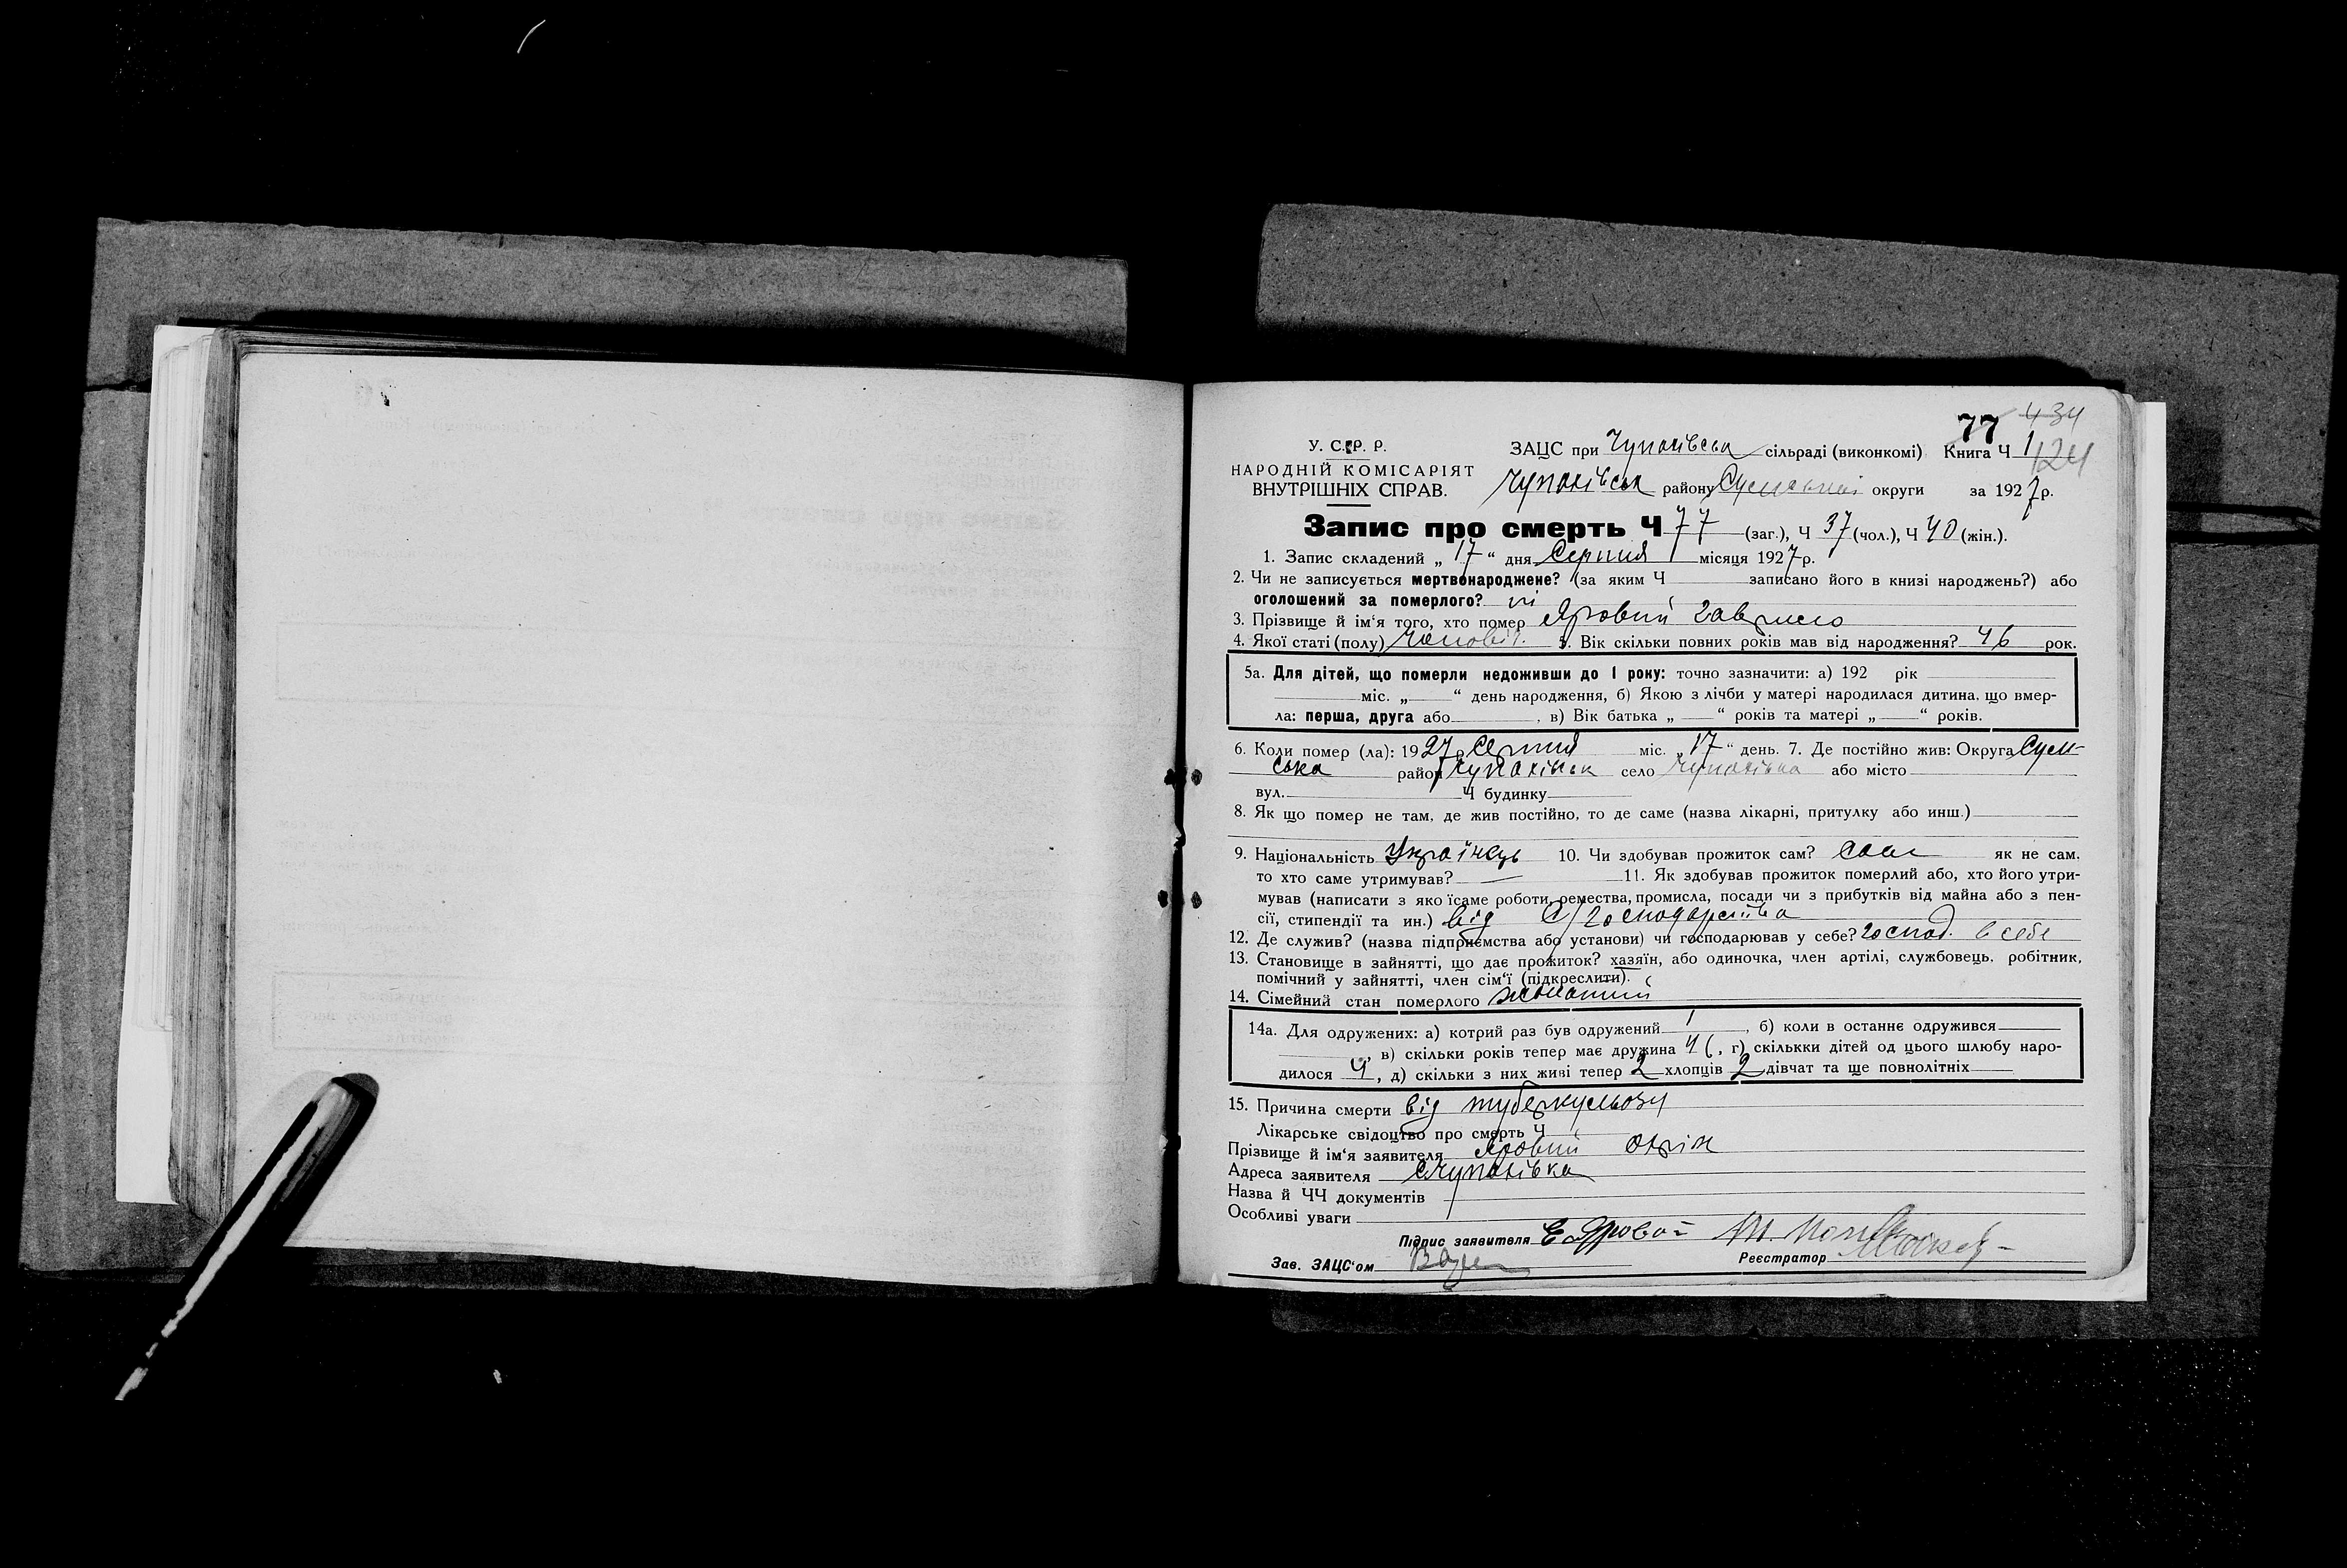 77 434
У. С. Р. Р. ЗАЦС при Чупахівська сільраді (виконкомі) Книга Ч 1
124
НАРОДНІЙ КОМІСАРІЯТ
ВНУТРІШНІХ СПРАВ. Чупахівськ району Сумській округи за 1927 р.
Запис про смерть Ч 77 (заг.), Ч 37 (чол.), Ч 40 (жін.).
1. Запис складений „ 17 “ дня Серпня місяця 1927 р.
2. Чи не записується мертвонароджене? (за яким Ч записано його в книзі народжень?) або
оголошений за померлого? ні
3. Прізвище й ім‘я того, хто помер Яровий Гаврило
4. Якої статі (полу) чоловіч. 5. Вік скільки повних років мав від народження? 46 рок.
5а. Для дітей, що померли недоживши до 1 року: точно зазначити: а) 192 рік
міс. „ “ день народження, б) Якою з лічби у матері народилася дитина, що вмер-
ла: перша, друга або , в) Вік батька „ “ років та матері „ “ років.
6. Коли помер (ла): 1927 р. Серпня міс. „ 17 “ день. 7. Де постійно жив: Округа Сум-
ська район Чупахівськ село Чупахівка або місто
вул. Ч будинку
8. Як що помер не там, де жив постійно, то де саме (назва лікарні, притулку або инш.)
9. Національність Українець 10. Чи здобував прожиток сам? Сам як не сам,
то хто саме утримував? — 11. Як здобував прожиток померлий або, хто його утри-
мував (написати з якоїсаме роботи, ремества, промисла, посади чи з прибутків від майна або з пен-
сії, стипендії та ин.) від С/господарства
12. Де служив? (назва підприємства або установи) чи господарював у себе? господ. в себе
13. Становище в зайнятті, що дає прожиток? хазяїн, або одиночка, член артілі, службовець, робітник,
помічний у зайнятті, член сім‘ї (підкреслити).
14. Сімейний стан померлого жонатий
14а. Для одружених: а) котрий раз був одружений 1 , б) коли в останнє одружився
, в) скільки років тепер має дружина , г) скількки дітей од цього шлюбу наро-
дилося 4 , д) скільки з них живі тепер 2 хлопців 2 дівчат та ще повнолітніх
15. Причина смерти від туберкульозу
Лікарське свідоцтво про смерть Ч
Прізвище й ім‘я заявителя Яровий
Адреса заявителя с Чупахівка
Назва й ЧЧ документів
Особливі уваги
Підпис заявителя Е Яровой
Зав. ЗАЦС‘ом Реєстратор